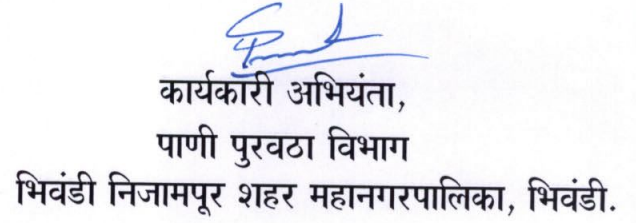 कार्यकारी अभियंता,
पाणी पुरवठा विभाग
भिवंडी निजामपूर शहर महानगरपालिका, भिवंडी.